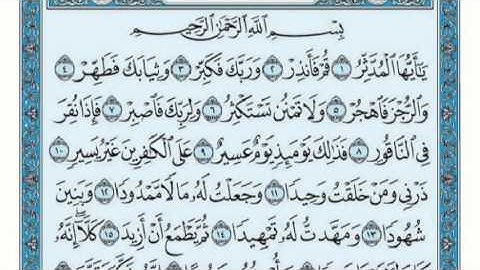 بِسْمِ ٱللَّهِ ٱلرَّحْمَٰنِ ٱلرَّحِيمِ
يَٰٓأَيُّهَا ٱلْمُدَّثِّرُ ١ قُمْ فَأَنذِرْ ٢ وَرَبَّكَ فَكَبِّرْ ٣ وَثِيَابَكَ فَطَهِّرْ ٤
وَٱلرُّجْزَ فَٱهْجُرْ ٥ وَلَا تَمْنُن تَسْتَكْثِرُ ٦ وَلِرَبِّكَ فَٱصْبِرْ ٧ فَإِذَا نُقِرَ
فِى ٱلنَّاقُورِ ٨ فَذَٰلِكَ يَوْمَئِذٍ يَوْمٌ عَسِيرٌ ٩ عَلَى ٱلْكَٰفِرِينَ غَيْرُ يَسِيرٍ ١٠
ذَرْنِى وَمَنْ خَلَقْتُ وَحِيدًا ١١ وَجَعَلْتُ لَهُۥ مَالًا مَّمْدُودًا ١٢ وَبَنِينَ
شُهُودًا ١٣ وَمَهَّدتُّ لَهُۥ تَمْهِيدًا ١٤ ثُمَّ يَطْمَعُ أَنْ أَزِيدَ ١٥ كَلَّآ ۖ إِنَّهُۥ